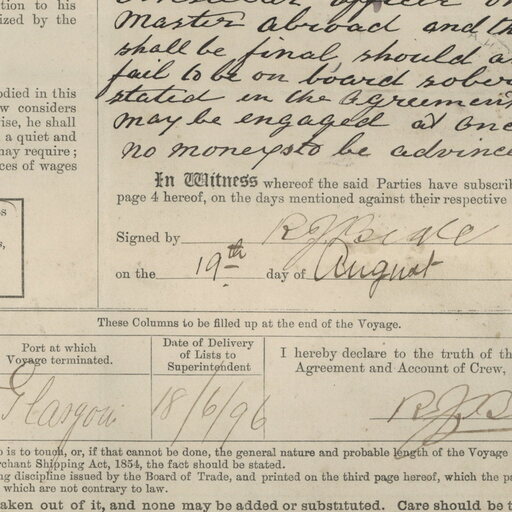 tion to his
ized by the
odied in this
w considers
ise, he shall
a quiet and
may require;
ces of wages
s,
officer
Master abroad and th
shall be final, should a
fail to be on board sober
stated in the Agreement
may be engaged at onc
no moneys to be advance
In Witness whereof the said Parties have subscrib
page 4 hereof, on the days mentioned against their respective
Signed by
on the 19th day of August
These Columns to be filled up at the end of the Voyage.
Port at which
Voyage terminated.
Date of Delivery
of Lists to
Superintendent
I hereby declare to the truth of th
Agreement and Account of Crew,
Glasgow
18/6/96
R J B
o is to touch, or, if that cannot be done, the general nature and probable length of the Voyage
rchant Shipping Act, 1854, the fact should be stated.
ng discipline issued by the Board of Trade, and printed on the third page hereof, which the pa
which are not contrary to law.
aken out of it, and none may be added or substituted. Care should be t